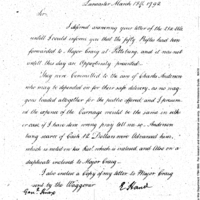 Lancaster March 15th 1794
Sir,
I deferred answering your letter of the 21st Ulto
untill I could inform you that the fifty Rifles had been
forwarded to Major Craig at Pittsburg, and it was not
untill this day an Opportunity presented.
They were Committed to the care of Charles Anderson
who may be depended on for their safe delivery, as no wag-
gons loaded altogether for the public offered and I presume
the expence of the Carriage would be the same in either
case. I have done
Anderson
being scarce of Cash 12 Dollars were Advanced him,
which is noted on his bill which is indorsed and Also on a
duplicate inclosed to Major Craig.
I also inclose a Copy of my letter to Major Craig
sent by the Waggoner
E. Hand
Genl Knox